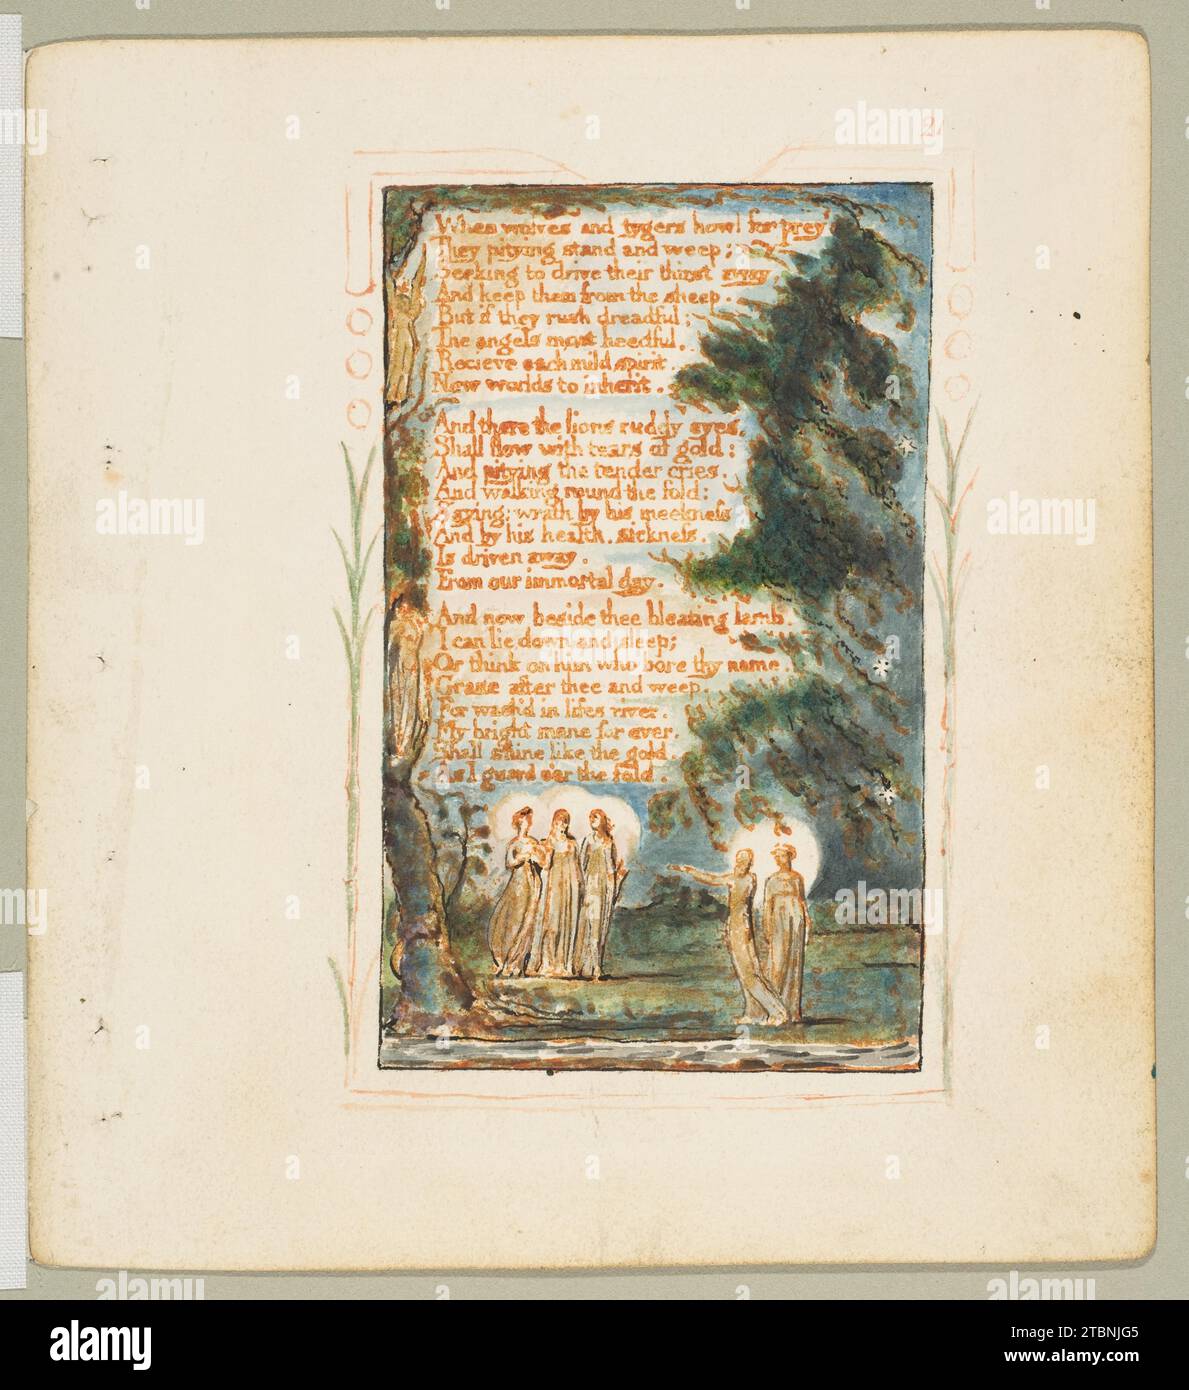 2
When wolves and tygers howl for prey
They pitying stand and weep;
Seeking to drive their thirst away,
And keep them from the sheep.
But if they rush dreadful;
The angels most heedful,
Recieve each mild spirit
New worlds to inherit.
And there the lions ruddy eyes,
Shall flow with tears of gold:
And pitying the tender cries,
And walking round the fold:
Saying: wrath by his meekness
And by his health, sickness.
Is driven away.
From our immortal day.
And now beside thee bleating lamb,
I can lie down and sleep;
Or think on him who bore thy name,
Graze after thee and weep.
For wash'd in lifes river.
My bright mane for ever.
Shall shine like the gold.
As I guard o'er the fold.
alamy
Image ID: 2TBNJG5
www.alamy.com